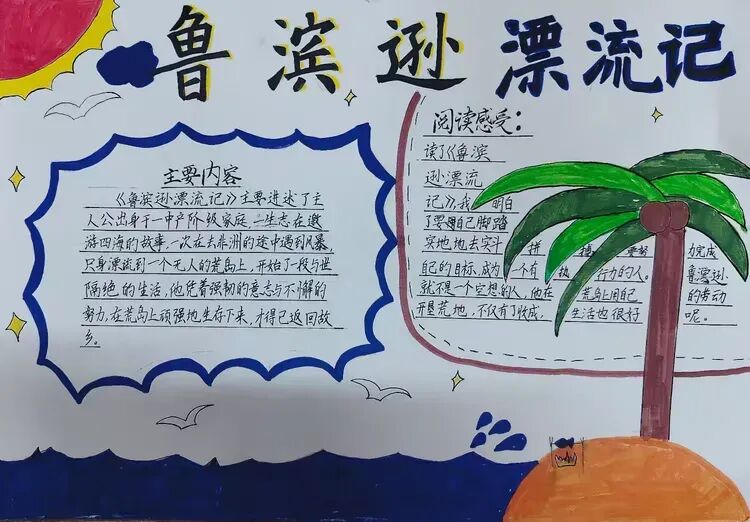 鲁滨逊漂流记
主要内容
《鲁滨逊漂流记》主要讲述了主
人公出身于一中产阶级家庭,一生志在遨
游四海的故事,一次在去非洲的途中遇到风暴,
只身漂流到一个无人的荒岛上,开始了一段与世
隔绝的生活,他凭着强韧的意志与不懈的
努力,在荒岛上顽强地生存下来,才得已返回故
乡。
阅读感受:
读了《鲁滨
逊漂流
记》,我 明白
了要用自己脚踏
实地地去实斗 拼 搏 要努 力完成
自己的目标,成为 一个有 执 行力的人。鲁滨逊
就不是一个空想的人,他在 荒岛上用自己 的劳动
开垦荒地,不仅有了收成, 生活也很好 呢。